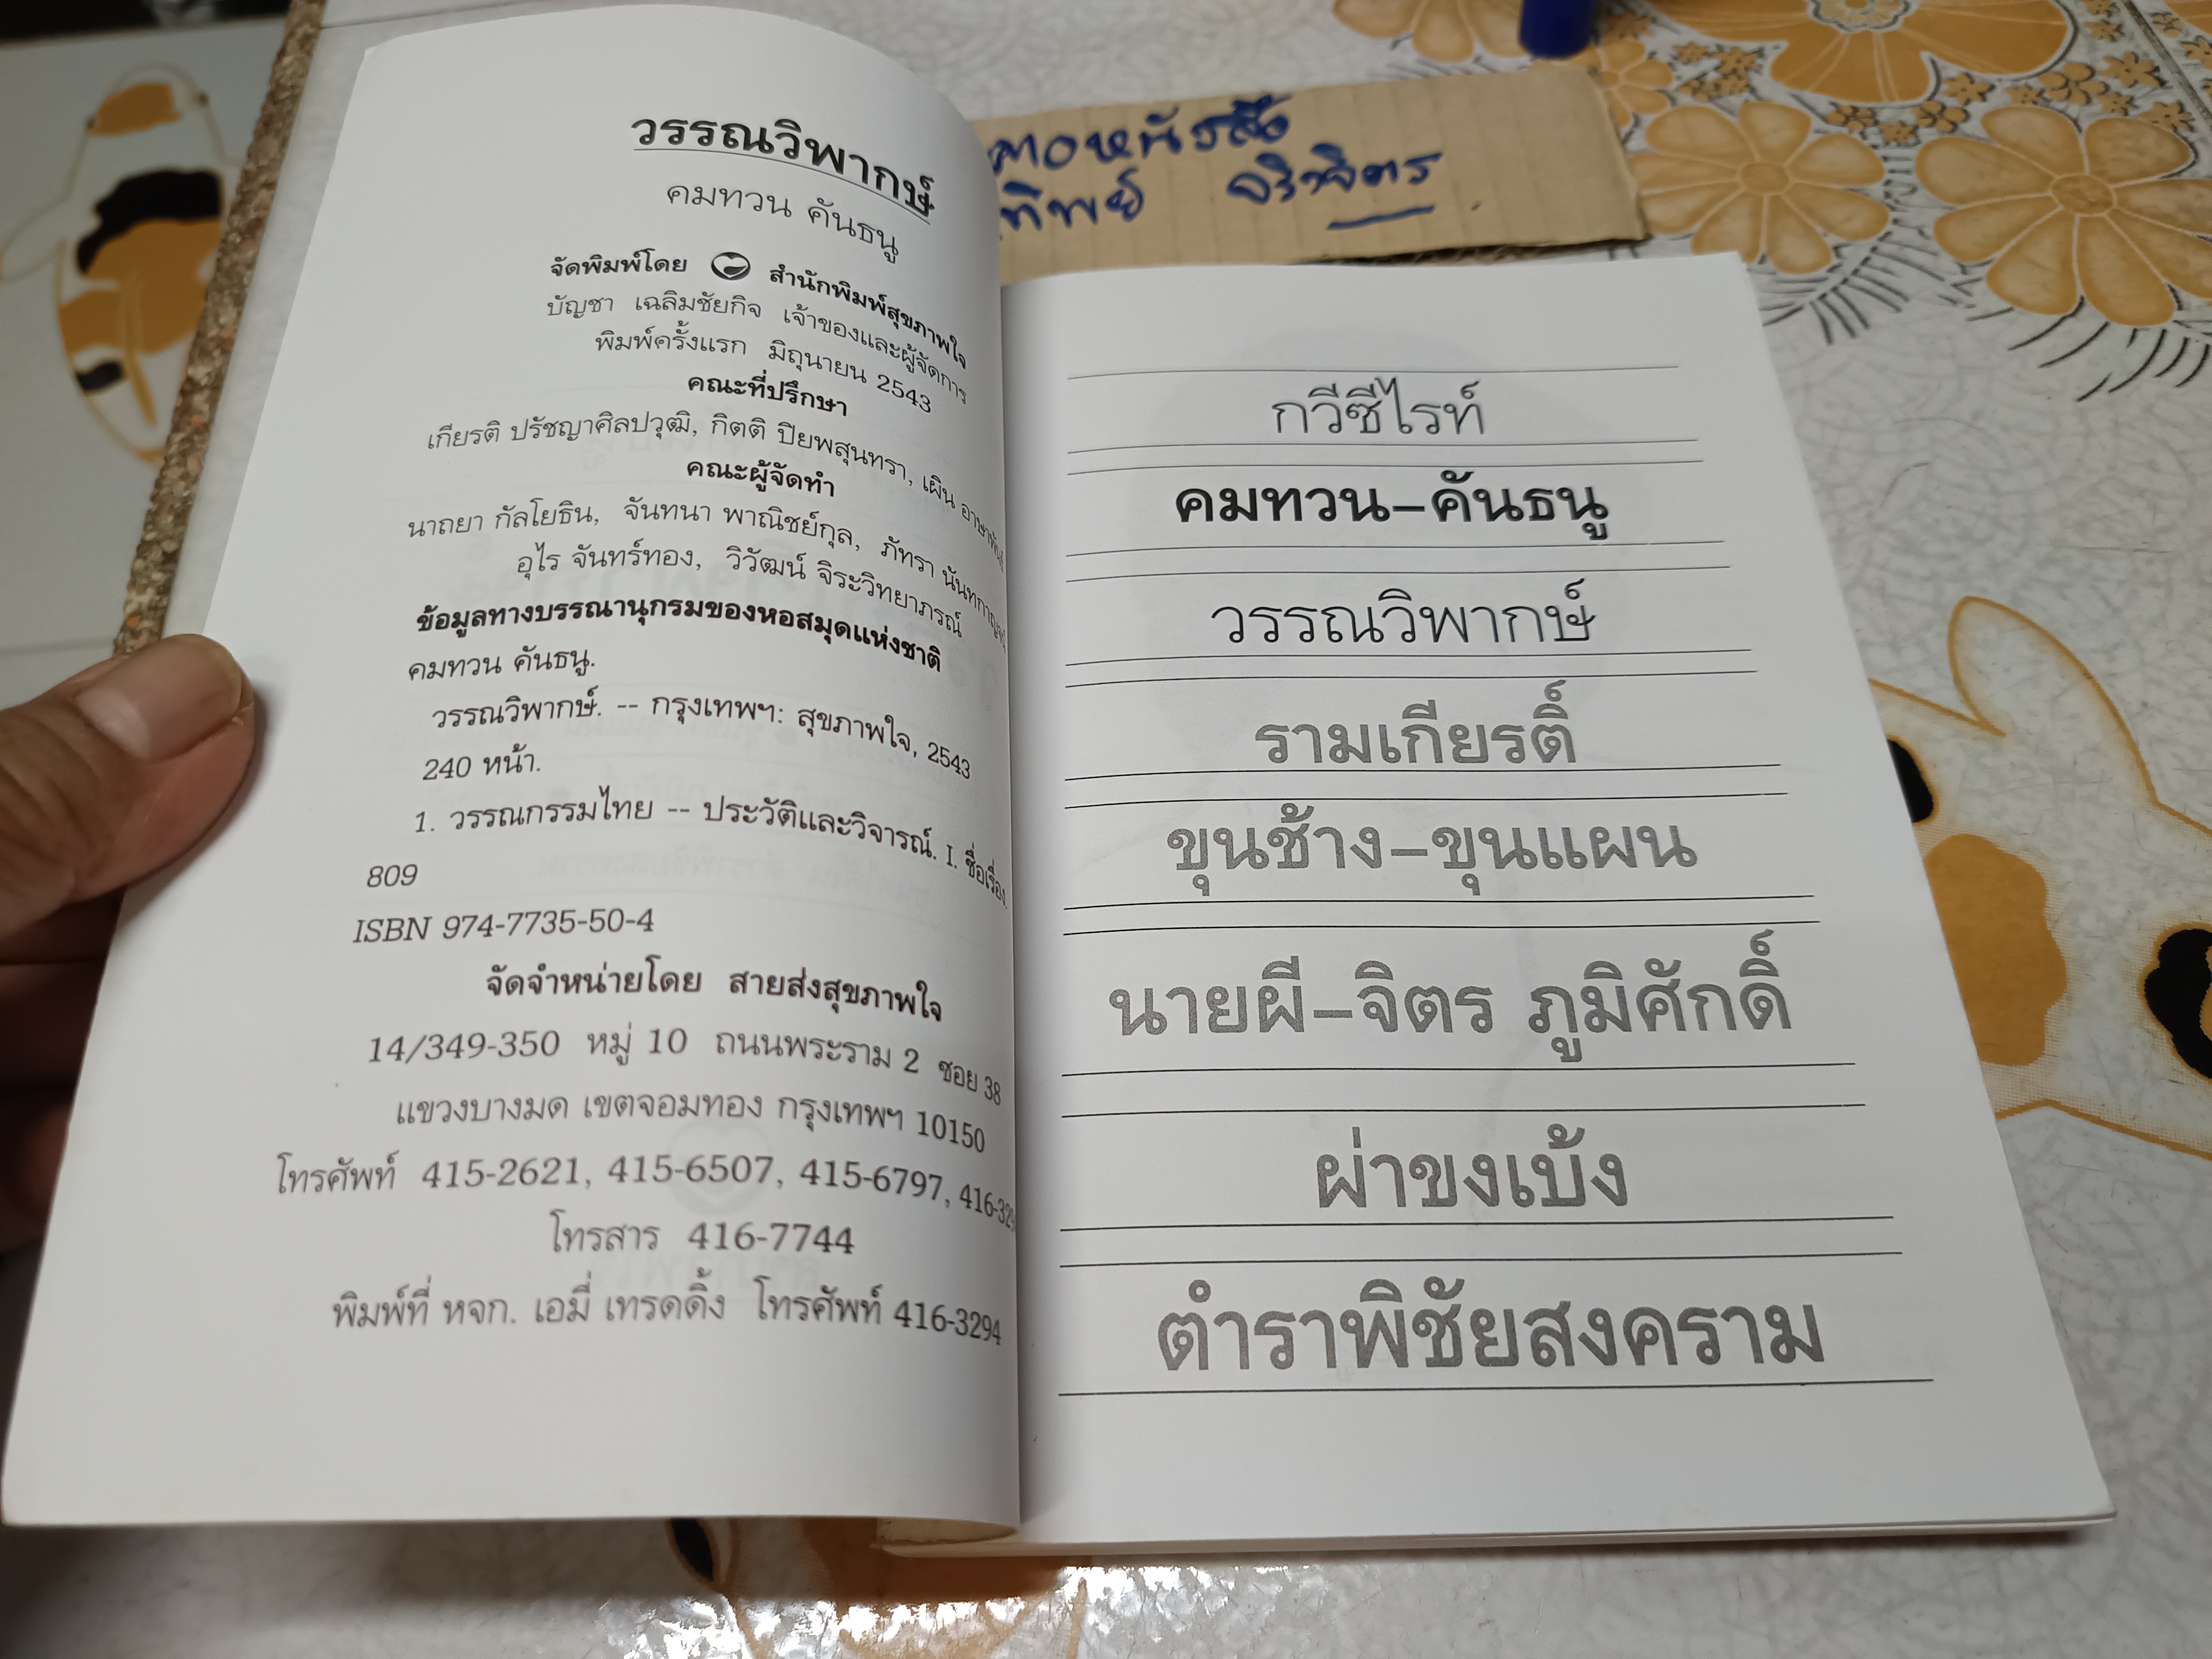 วรรณวิพากษ์
คมทวน คันธนู
จัดพิมพ์โดย สำนักพิมพ์สุขภาพใจ
บัญชา เฉลิมชัยกิจ เจ้าของและผู้จัดการ
พิมพ์ครั้งแรก มิถุนายน 2543
คณะที่ปรึกษา
เกียรติ ปรัชญาศิลปวุฒิ, กิตติ ปิยพสุนทรา, เผิน
คณะผู้จัดทำ
นาถยา กัลโยธิน, จันทนา พาณิชย์กุล, ภัทรา
อุไร จันทร์ทอง, วิวัฒน์ จิระวิทยาภรณ์
ข้อมูลทางบรรณานุกรมของหอสมุดแห่งชาติ
คมทวน คันธนู.
วรรณวิพากษ์. -- กรุงเทพฯ: สุขภาพใจ, 2543
240 หน้า.
1. วรรณกรรมไทย -- ประวัติและวิจารณ์. I. ชื่อเรื่อง.
809
ISBN 974-7735-50-4
จัดจำหน่ายโดย สายส่งสุขภาพใจ
14/349-350 หมู่ 10 ถนนพระราม 2 ซอย 38
แขวงบางมด เขตจอมทอง กรุงเทพฯ 10150
โทรศัพท์ 415-2621, 415-6507, 415-6797,
โทรสาร 416-7744
พิมพ์ที่ หจก. เอมี่ เทรดดิ้ง โทรศัพท์ 416-3294
กวีซีไรท์
คมทวน–คันธนู
วรรณวิพากษ์
รามเกียรติ์
ขุนช้าง–ขุนแผน
นายผี–จิตร ภูมิศักดิ์
ผ่าขงเบ้ง
ตำราพิชัยสงคราม